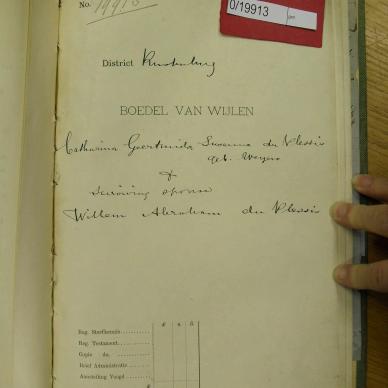 No. 19913
0/19913
District Rustenburg
BOEDEL VAN WIJLEN
Catharina Geertruida Susanna du Plessis
geb. Weyers
&
surviving spouse
Willem Abraham du Plessis
£ s. d.
Reg. Sterfkennis
Reg. Testament
Copie do.
Brief Administratie
Aanstelling Voogd
£